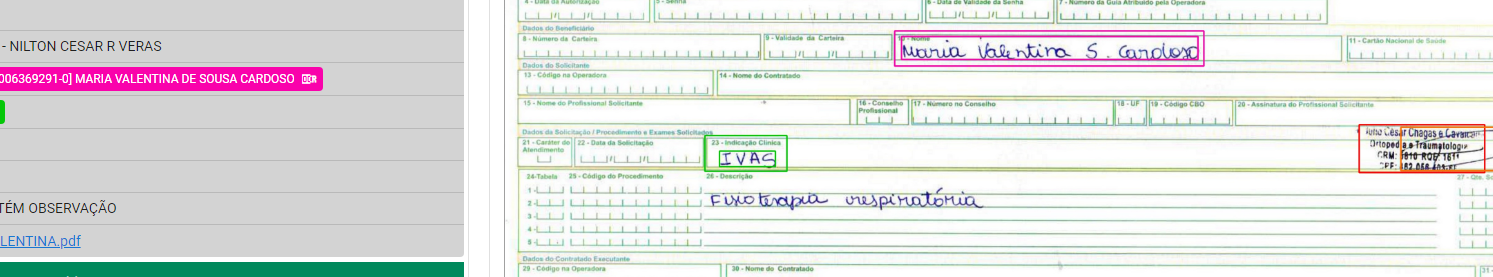 - NILTON CESAR R VERAS
006369291-0] MARIA VALENTINA DE SOUSA CARDOSO OCR
TÉM OBSERVAÇÃO
LENTINA.pdf
4 - Data da Autorização 5 - Senha 6 - Data de Validade da Senha 7 - Número da Guia Atribuído pela Operadora
Dados do Beneficiário
8 - Número da Carteira 9 - Validade da Carteira 10 - Nome 11 - Cartão Nacional de Saúde
Maria Valentina S. Cardoso
Dados do Solicitante
13 - Código na Operadora 14 - Nome do Contratado
15 - Nome do Profissional Solicitante 16 - Conselho Profissional 17 - Número no Conselho 18 - UF 19 - Código CBO 20 - Assinatura do Profissional Solicitante
Dados da Solicitação / Procedimento e Exames Solicitados
21 - Caráter do Atendimento 22 - Data da Solicitação 23 - Indicação Clínica
IVAS
César Chagas e
Ortopedia e Traumatologia
CRM: RQE 1611
CPF:
24-Tabela 25 - Código do Procedimento 26 - Descrição 27 - Qte. S
1 -
2 - Fisioterapia respiratória
3 -
4 -
5 -
Dados do Contratado Executante
29 - Código na Operadora 30 - Nome do Contratado 31 -